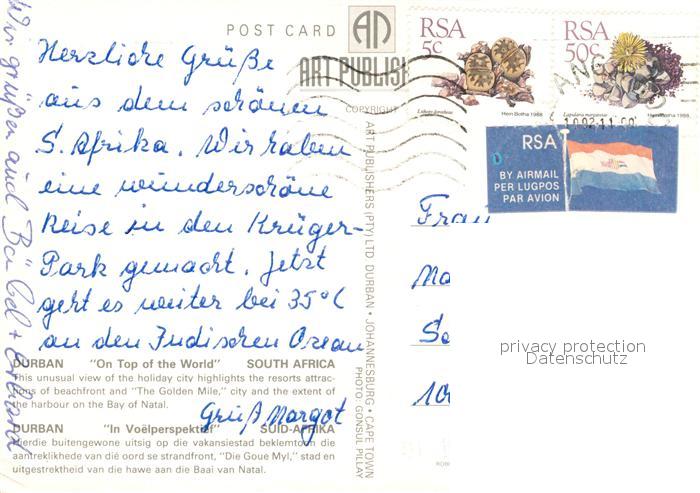 POST CARD
ART PUBLISH
COPYRIGHT
RSA
5c
Hein Botha 1988
RSA
50c
Hein Botha 1988
RSA
BY AIRMAIL
PER LUGPOS
PAR AVION
Herzliche Grüße
aus dem schönen
S. Afrika. Wir haben
eine wunderschöne
Reise in den Krüger-
Park gemacht. Jetzt
geht es weiter bei 35°C
an den Indischen Ozean
Gruß Margot
Wir grüßen auch
Frau
DURBAN "On Top of the World" SOUTH AFRICA
This unusual view of the holiday city highlights the resorts attrac-
tions of beachfront and "The Golden Mile," city and the extent of
the harbour on the Bay of Natal.
DURBAN "In Voëlperspektief" SUID-AFRIKA
Hierdie buitengewone uitsig op die vakansiestad beklemtoon die
aantreklikhede van dié oord se strandfront, "Die Goue Myl," stad en
uitgestrektheid van die hawe aan die Baai van Natal.
ART PUBLISHERS (PTY) LTD DURBAN • JOHANNESBURG • CAPE TOWN
PHOTO: GONSUL PILLAY
privacy protection
Datenschutz